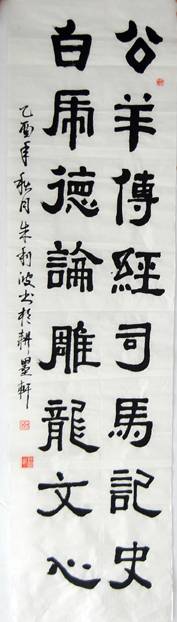 公羊傳經司馬記史
白虎德論雕龍文心
乙酉年秋月朱利波书於耕墨軒